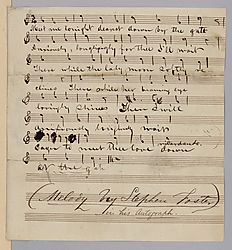 Meet me tonight dearest down by the gate
Anxiously, longingly for thee I'll wait
There while the lady moon softly de
clines, There while her beaming eye
lovingly shines There I will
anxiously longingly wait
Eager to meet thee love down
ritardando
at the gate
(Melody by Stephen Foster)
in his Autograph.